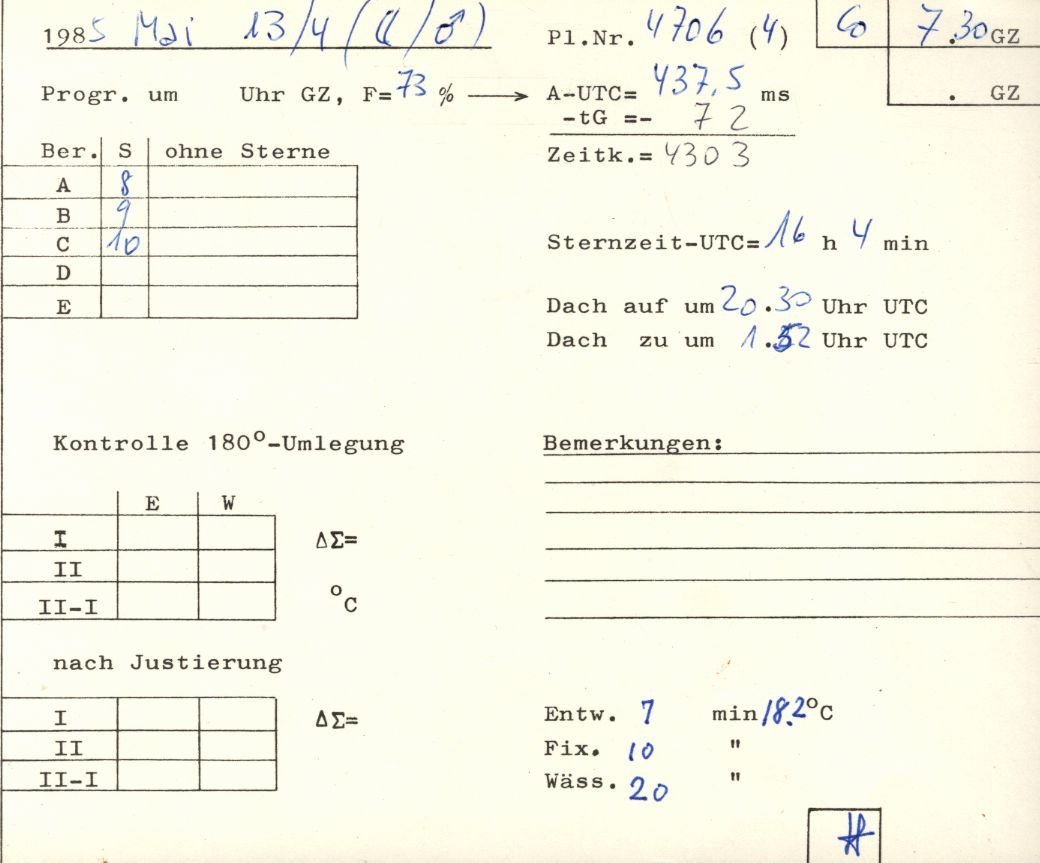 1985 Mai 13/4 (☾/♂) Pl.Nr. 4706 (4) Co 7.30 GZ
Progr. um Uhr GZ, F=73 % → A-UTC= 437,5 ms . GZ
-tG =- 7 2
Ber. S ohne Sterne Zeitk.= 430 3
A 8
B 9
C 10 Sternzeit-UTC= 16 h 4 min
D
E Dach auf um 20.30 Uhr UTC
Dach zu um 1.52 Uhr UTC
Kontrolle 180°-Umlegung Bemerkungen:
E W
I ΔΣ=
II
II-I °C
nach Justierung
I ΔΣ= Entw. 7 min 18.2°C
II Fix. 10 "
II-I Wäss. 20 "